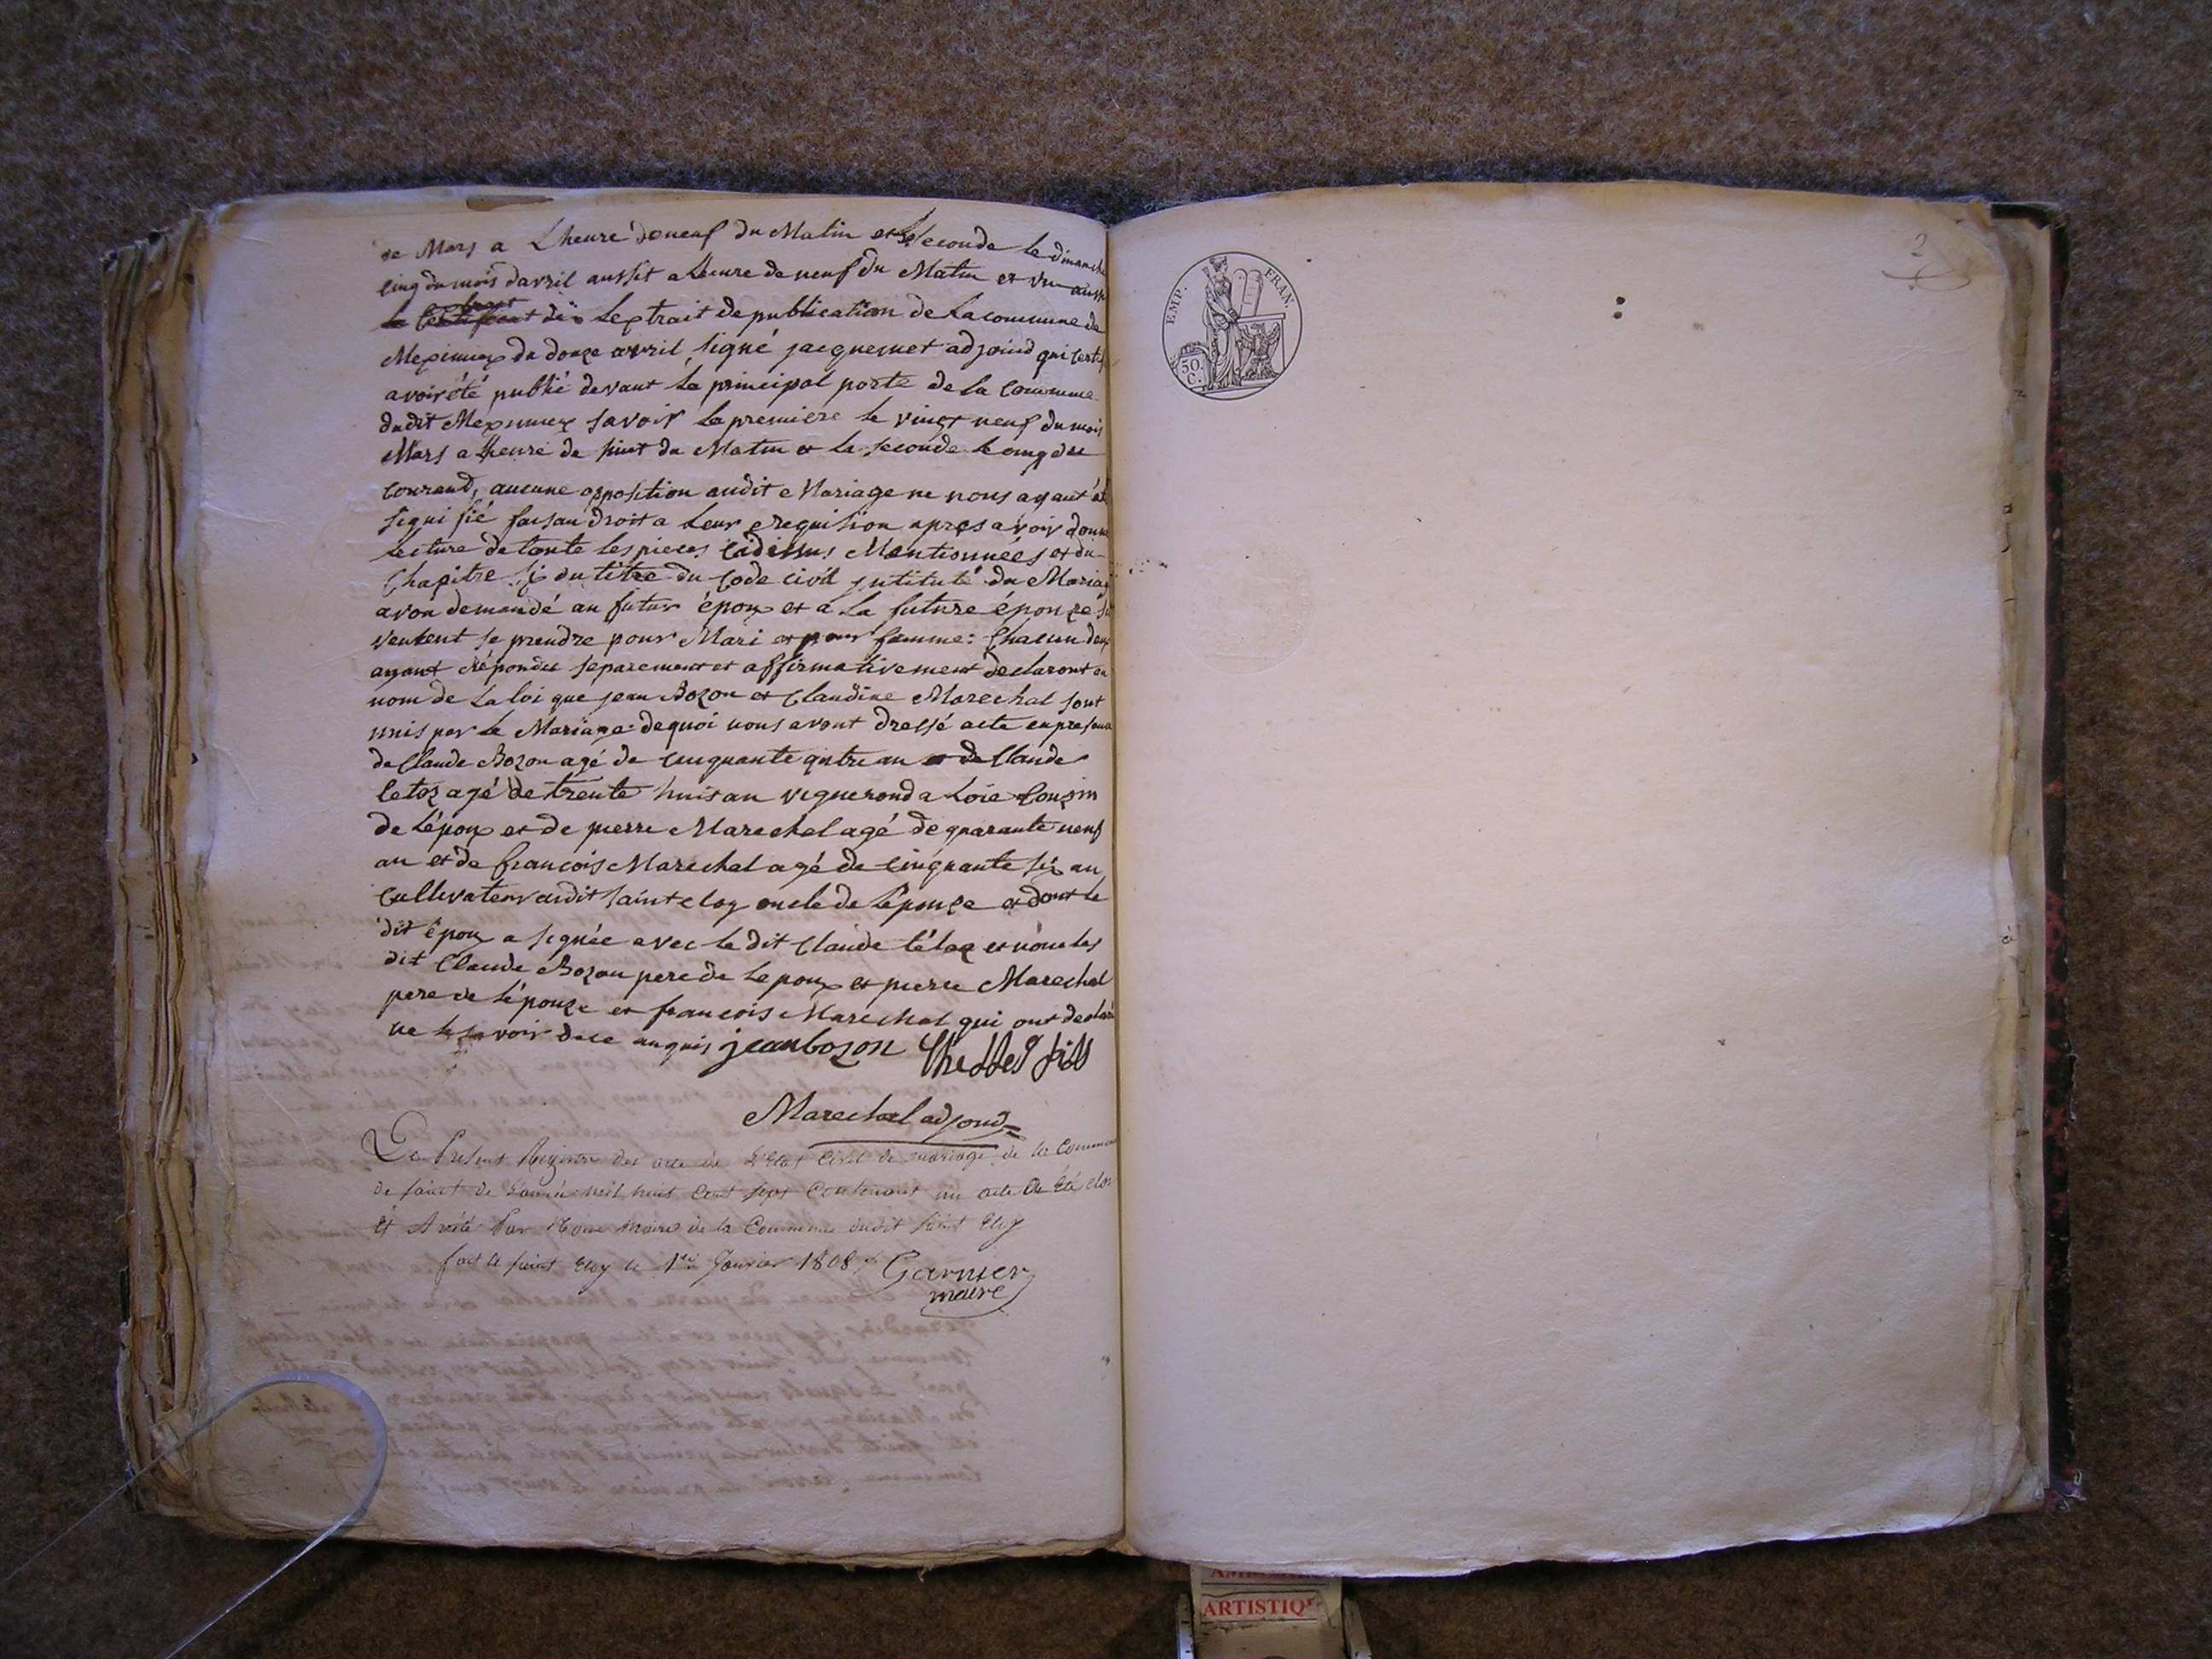 de Mars a Lheure de neuf du Matin et la Seconde le dimanche
cinq du mois davril aussit a Lheure de neuf du Matin et vu aussi
le Certificat di Lextrait de publication de La commune de
Meximiex du douze avril, signé jacquemet adjoind qui certif
avoir été publié devant La principal porte de la Commune
dudit Meximiex savoir La premiere le vingt neuf du mois
Mars a Lheure de huit du Matin et la seconde le cinq du
Courand, aucune opposition audit Mariage ne nous ayant été
signifié faisan droit a Leur requision apres avoir donné
Lecture de toute les pieces cidessus Mentionnées et du
Chapitre six du titre du Code civil intitulé du Mariage
avon demandé au futur époux et a La future épouze s'il
veulent se prendre pour Mari et pour femme: Chacun deux
ayant répondu separement et affirmativement declaront au
nom de La loi que jean Bozon et Claudine Marechal sont
unis par Le Mariage dequoi nous avont dressé acte en presence
de Claude Bozon agé de cinquante qatre an de Claude
agé de trente huis an viguerond a Loie Couzin
de Lépoux et de pierre Marechal agé de quarante neuf
an et de francois Marechal agé de cinquante six an
Cultivateur audit Saint eloy oncle de Lépouze et dont le
dit époux a signée avec le dit Claude et nom les
dit Claude Bozon pere de Lepoux et pierre Marechal
pere de Lépouze et francois Marechal qui ont declaré
ne le savoir de ce anquis jean bozon
Marechal adjoind
Le Présent Registre des acte de L'Etat Civil de mariage de la Commune
de saint de Lannée mil huis Cent sept Contenant un acte a Été clos
Et Arrêté Par Nous maire de la Commune dudit Saint Eloy
fait a saint Eloy le 1er Janvier 1808 Garnier
maire
2
EMP. FRAN.
50 C.
ARTISTIQ